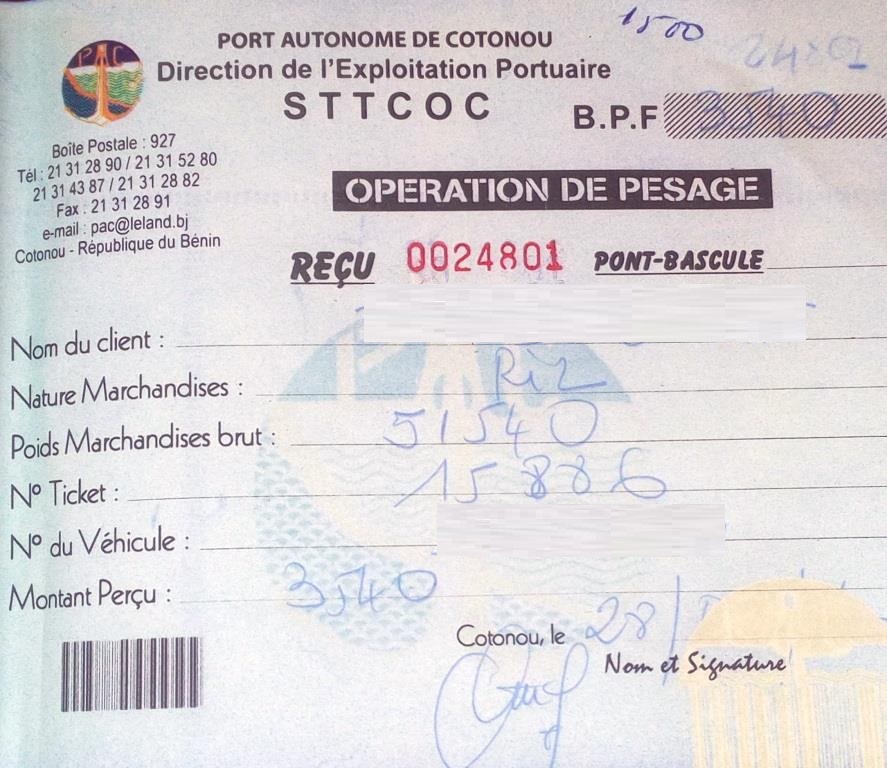 1500
PORT AUTONOME DE COTONOU
24801
Direction de l'Exploitation Portuaire
STTCOC
B.P.F 3540
PAC
Boîte Postale : 927
Tél : 21 31 28 90 / 21 31 52 80
21 31 43 87 / 21 31 28 82
Fax : 21 31 28 91
e-mail : pac@leland.bj
Cotonou - République du Bénin
OPERATION DE PESAGE
REÇU 0024801 PONT-BASCULE
Nom du client :
Nature Marchandises : Riz
Poids Marchandises brut : 51540
N° Ticket : 15886
N° du Véhicule :
Montant Perçu : 3540
Cotonou, le 28/
Nom et Signature